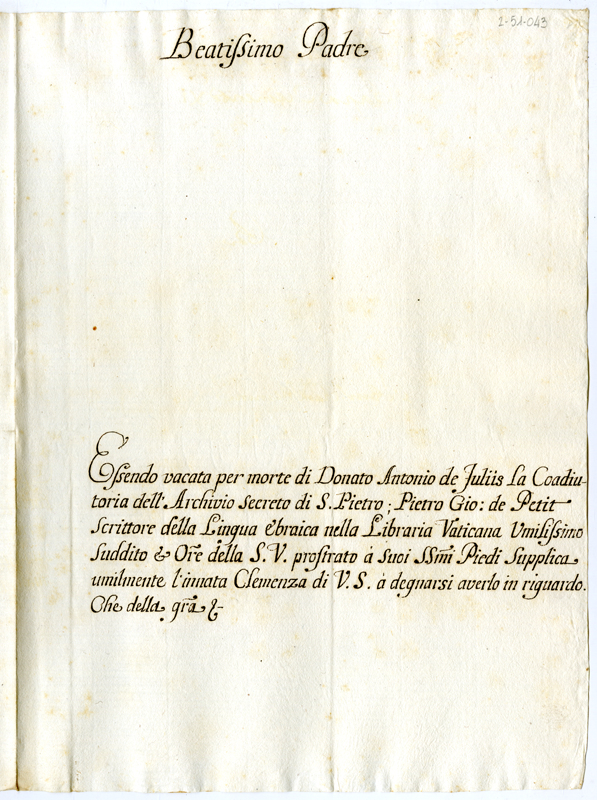 2-51-043
Beatissimo Padre
Essendo vacata per morte di Donato Antonio de Juliis La Coadiu-
toria dell'Archivio secreto di S. Pietro; Pietro Gio: de Petit
Scrittore della Lingua Ebraica nella Libraria Vaticana Umilissimo
Suddito & Ore della S. V. prostrato à suoi SSmi Piedi Supplica
umilmente l'innata Clemenza di V. S. à degnarsi averlo in riguardo.
Che della gra &